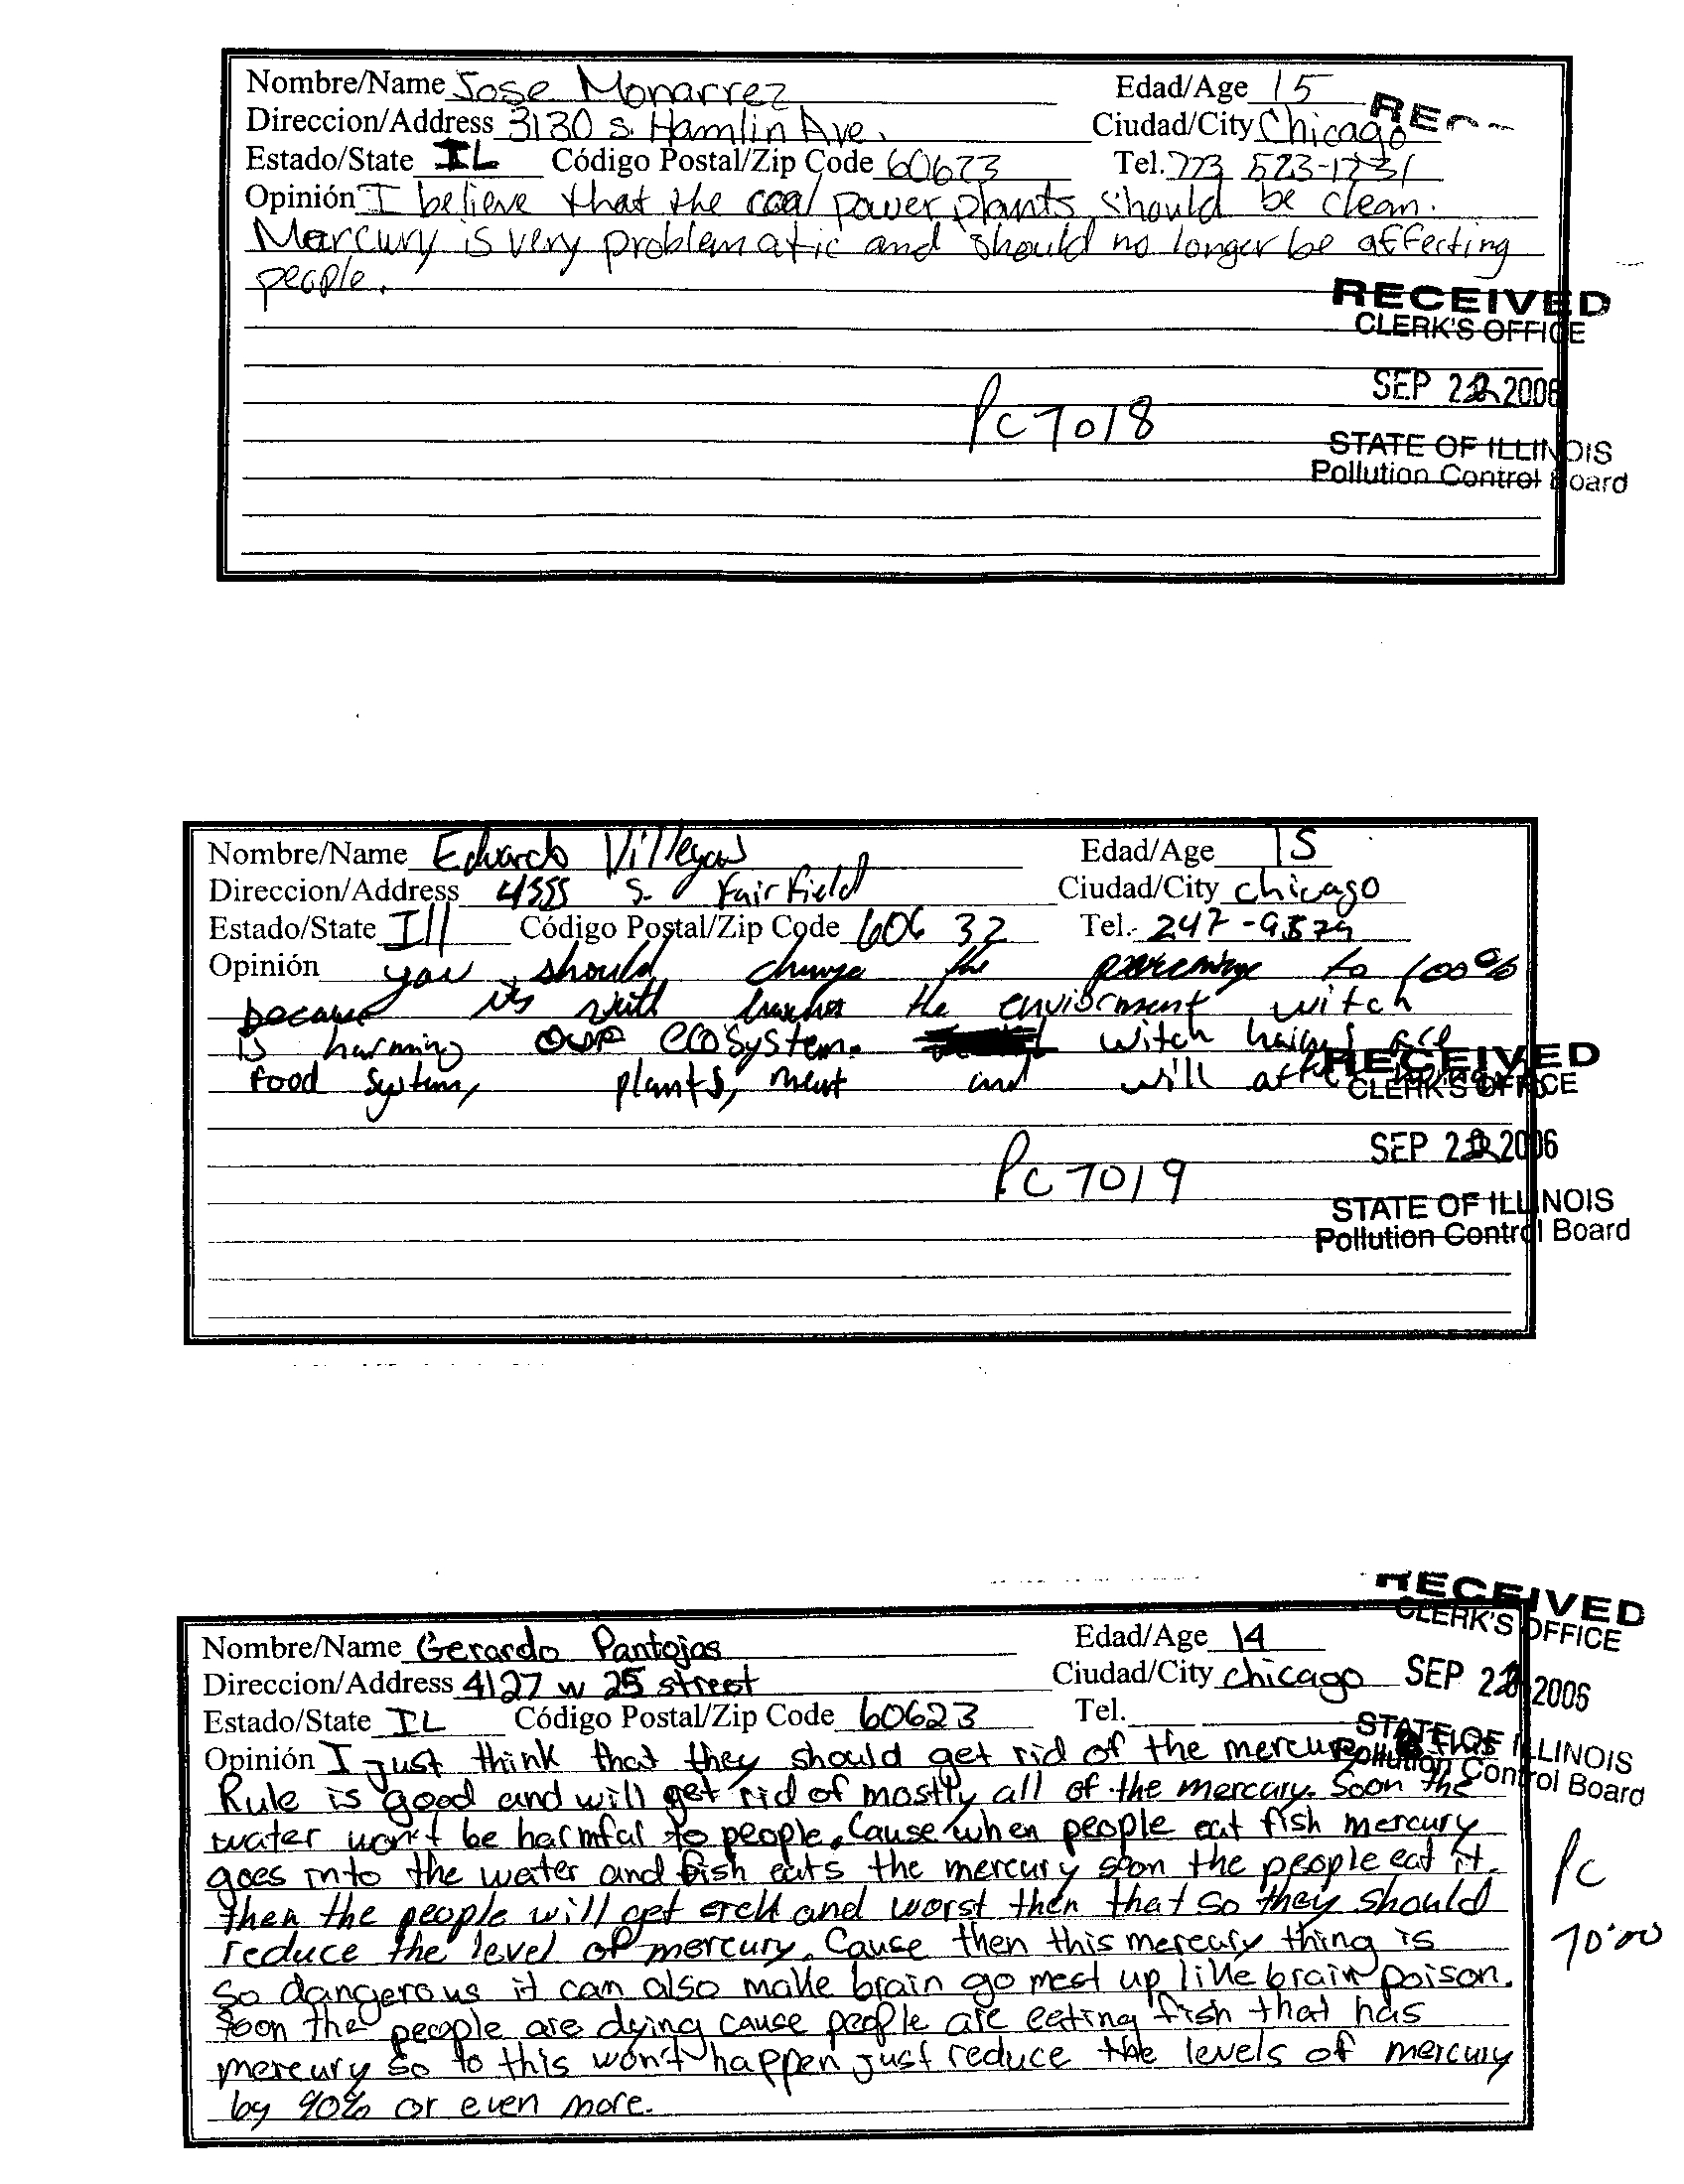 Nombre/Name Jose Monarrez Edad/Age 15
Direccion/Address 3130 S. Hamlin Ave. Ciudad/City Chicago
Estado/State IL Código Postal/Zip Code 60623 Tel. 773 523-1731
Opinión I believe that the coal power plants should be clean.
Mercury is very problematic and should no longer be affecting
people.
RECEIVED
CLERK'S OFFICE
SEP 22 2006
PC 7018
STATE OF ILLINOIS
Pollution Control Board
Nombre/Name Eduardo Villegas Edad/Age 15
Direccion/Address 4555 S. Fairfield Ciudad/City chicago
Estado/State Ill Código Postal/Zip Code 60632 Tel. 247-9879
Opinión you should change the to 100%
because its the enviorment witch
is harming our ecosystem. witch
food system, plants, meat and will
RECEIVED
CLERK'S OFFICE
SEP 22 2006
PC 7019
STATE OF ILLINOIS
Pollution Control Board
RECEIVED
CLERK'S OFFICE
Nombre/Name Gerardo Pantojas Edad/Age 14
Direccion/Address 4127 w 25 street Ciudad/City chicago
SEP 22 2006
Estado/State IL Código Postal/Zip Code 60623 Tel.
STATE OF ILLINOIS
Pollution Control Board
Opinión I just think that they should get rid of the
Rule is good and will get rid of mostly all of the mercury. Soon the
water won't be harmful to people. Cause when people eat fish mercury
goes into the water and fish eats the mercury soon the people eat it.
then the people will get and worst then that so they should
reduce the level of mercury. Cause then this mercury thing is
so dangerous it can also make brain go mest up like brain poison.
Soon the people are dying cause people are eeting fish that has
mercury so to this won't happen just reduce the levels of mercury
by 90% or even more.
PC